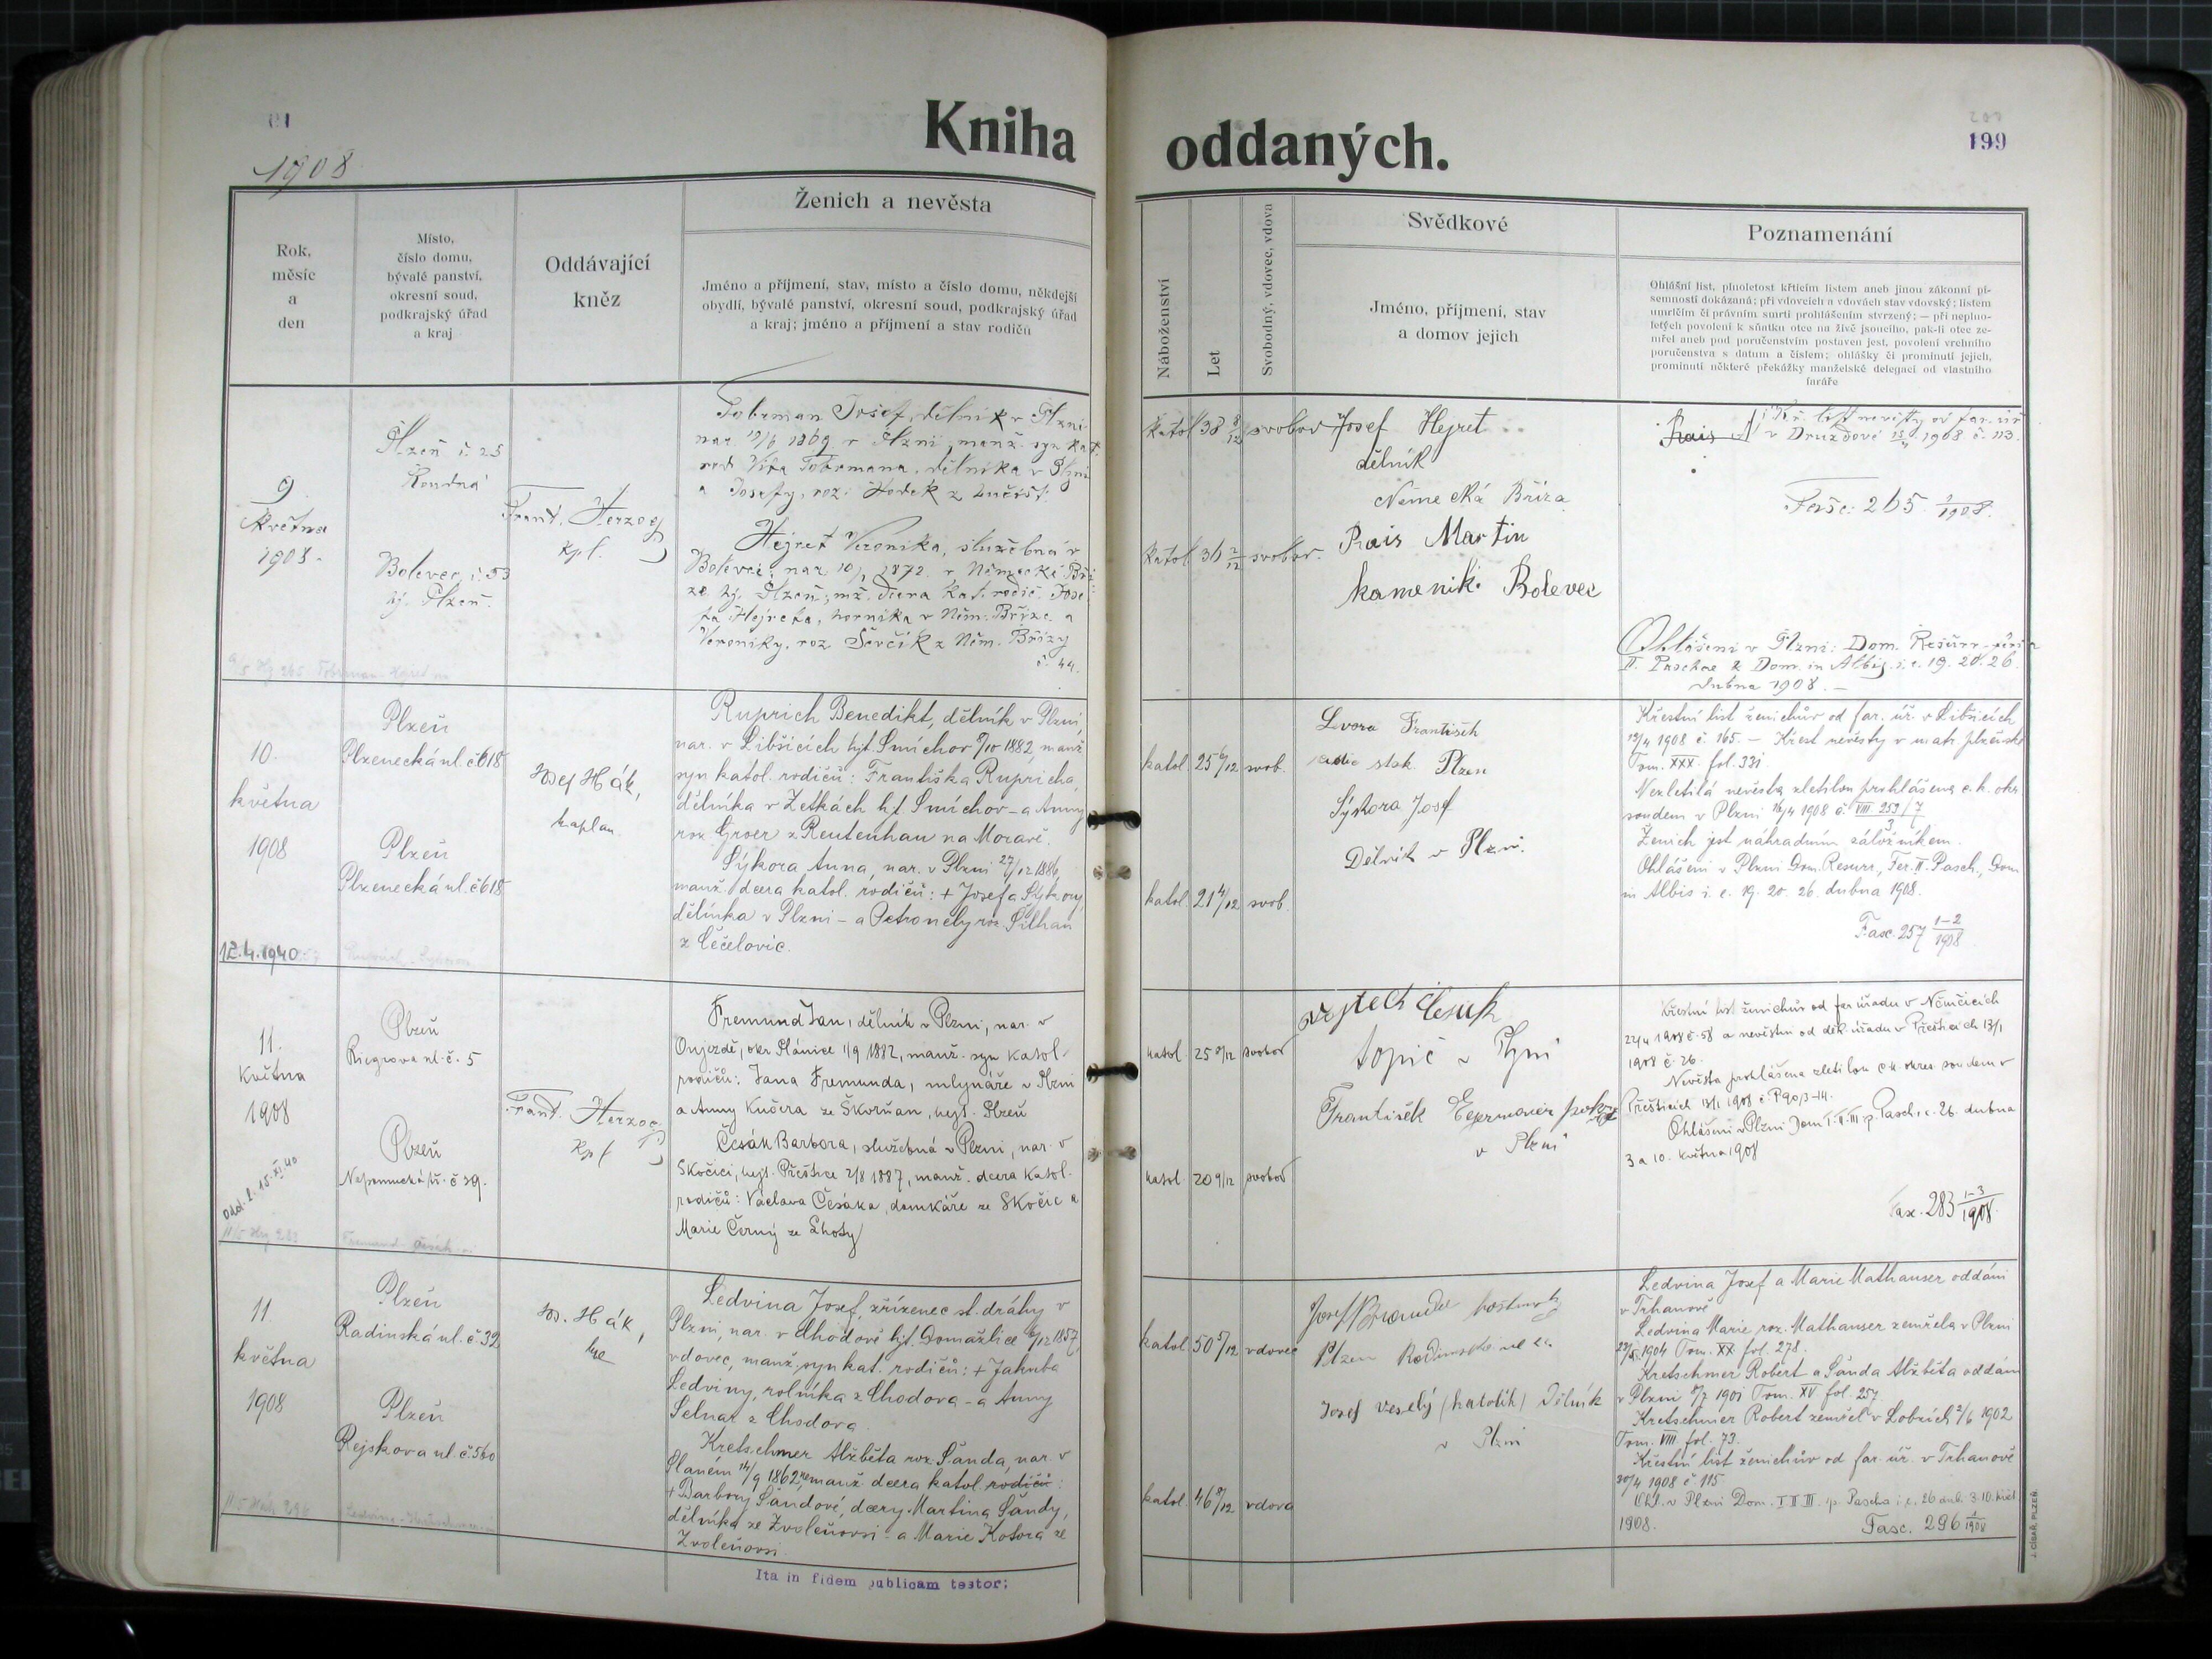 Kniha oddaných.
199
1908
Rok,
měsíc
a
den
Místo,
číslo domu,
bývalé panství,
okresní soud,
podkrajský úřad
a kraj
Oddávající
kněz
Ženich a nevěsta
Jméno a příjmení, stav, místo a číslo domu, někdejší
obydlí, bývalé panství, okresní soud, podkrajský úřad
a kraj; jméno a příjmení a stav rodičů
Náboženství
Let
Svobodný, vdovec, vdova
Svědkové
Jméno, příjmení, stav
a domov jejich
Poznamenání
Ohlášní list, plnoletost křticím listem aneb jinou zákonní pí-
semností dokázaná; při vdovcích a vdovách stav vdovský; listem
umrlčím či právním smrti prohlášením stvrzený; — při neplno-
letých povolení k sňatku otce na živě jsoucího, pak-li otec ze-
mřel aneb pod poručenstvím postaven jest, povolení vrchního
poručenstva s datum a číslem; ohlášky či prominutí jejich,
prominutí některé překážky manželské delegací od vlastního
faráře
9
května
1908.
Plzeň č. 25
Roudná
Bolevec, č. 53
hj. Plzeň.
Frant. Herzog
kpl.
Tobrman Josef, dělník v Plzni
nar. 1869 v Plzni, manž. syn kat.
rod. Víta Tobrmana, dělníka v Plzni
a Josefy, roz.
Hejret Veronika, služebná v
Bolevci, nar. 10/1 1872 v Německé Bří-
ze hj. Plzeň, mž. dcera kat. rodič. Jose-
fa Hejreta, horníka v Něm. Bříze a
Veroniky, roz. Ševčík z Něm. Břízy
č. 44.
katol 38 svobod
katol 36 svobod.
Josef Hejret
dělník
Německá Bříza
Rais Martin
kameník Bolevec
v Druzdové 1908 č. 113.
Fasc. 265 1/1908.
Ohlášeni v Plzni: Dom. Resurr.
II. Paschae & Dom. in Albis i. e. 19. 20. 26.
dubna 1908. —
10.
května
1908
12.4.1940
Plzeň
Plzenecká ul. č 618
Plzeň
Plzenecká ul. č 618
Josef Hák,
kaplan.
Ruprich Benedikt, dělník v Plzni,
nar. v Libšicích hjt. Smíchov 9/10 1882, manž.
syn katol. rodičů: Františka Rupricha,
dělníka v Letkách hjt. Smíchov – a Anny
roz. Groer z Reutenhau na Moravě.
Sýkora Anna, nar. v Plzni 27/12 1886,
manž. dcera katol. rodičů: + Josefa Sýkory,
dělníka v Plzni – a Petronely roz. Šilhan
z Čečelovic.
katol. 25 6/12 svob.
katol. 21 4/12 svob.
Lvora František
Plzen
Sýkora Josef
Dělník v Plzni.
Křestní list ženichův od far. úř. v Libšicích
1908 č. 165. – Křest nevěsty v matr. plzeňské
Tom. XXX. fol. 331.
Nezletilá nevěsta zletilou prohlášena c. k. okr.
soudem v Plzni 1908 č. VIII 259/7
3
Ženich jest náhradním záložníkem.
Ohlášeni v Plzni Dom. Resurr., Fer. II. Pasch., Dom.
in Albis i. e. 19. 20. 26. dubna 1908.
Fasc. 257 1–2/1908
11.
května
1908
Odd. l. 15.XI.40
Plzeň
Riegrova ul. č. 5
Plzeň
Nepomucká tř. č 39.
Frant. Herzog
Kpl
Fremund Jan, dělník v Plzni, nar. v
Oujezdě, okr. Plánice 1/9 1882, manž. syn katol.
rodičů: Jana Fremunda, mlynáře v Plzni
a Anny Kučera ze Škorňan, hejt. Plzeň
Česák Barbora, služebná v Plzni, nar. v
Skočici, hejt. Přeštice 2/8 1887, manž. dcera katol.
rodičů: Václava Česáka, domkáře ze Skočic a
Marie Černý ze Lhoty
katol. 25 8/12 svobod
katol. 20 9/12 svobod
Vojtěch Česák
topič v Plzni
František
v Plzni
Křestní list ženichův od far. úřadu v Němčicích
22/4 1908 č. 58 a nevěstin od děk. úřadu v Přešticích 13/1
1908 č. 26.
Nevěsta prohlášena zletilou c. k. okres. soudem v
Přešticích 13/1 1908 č.
Ohlášeni v Plzni Dom. I. II. III p. Pasch. i. e. 26. dubna
3 a 10. května 1908
Fasc. 283 1–3/1908
11.
května
1908
Plzeň
Radinská ul. č 32
Plzeň
Rejskova ul. č. 560
Jos. Hák,
Ledvina Josef, zřízenec st. dráhy v
Plzni, nar. v Chodově hjt. Domažlice 12 1857,
vdovec, manž. syn kat. rodičů: + Jakuba
Ledviny, rolníka z Chodova – a Anny
Selnar z Chodova.
Kretschmer Alžběta roz. Šanda, nar. v
Slaném 14/9 1862, nemanž. dcera katol. rodičů:
+ Barbory Šandové, dcery Martina Šandy,
dělníka ze Zvoleňovsi – a Marie Kotora ze
Zvoleňovsi.
katol. 50 5/12 vdovec
katol. 46 vdova
Josef
Plzen
Josef Veselý (katolík) Dělník
v Plzni
Ledvina Josef a Marie Mathauser oddáni
v Trhanově
Ledvina Marie roz. Mathauser zemřela v Plzni
1904 Tom. XX. fol. 278.
Kretschmer Robert a Šanda Alžběta oddáni
v Plzni 1901 Tom. XV. fol. 257
Kretschmer Robert zemřel v Lobzích 2/6 1902
Tom. VIII. fol. 73.
Křestní list ženichův od far. úř. v Trhanově
30/4 1908 č. 115
Ohl. v Plzni Dom. I II III. p. Pascha i. e. 26 dub. 3. 10. květ.
1908.
Fasc. 296 1/1908
Ita in fidem publicam testor:
J. CÍSAŘ, PLZEŇ.